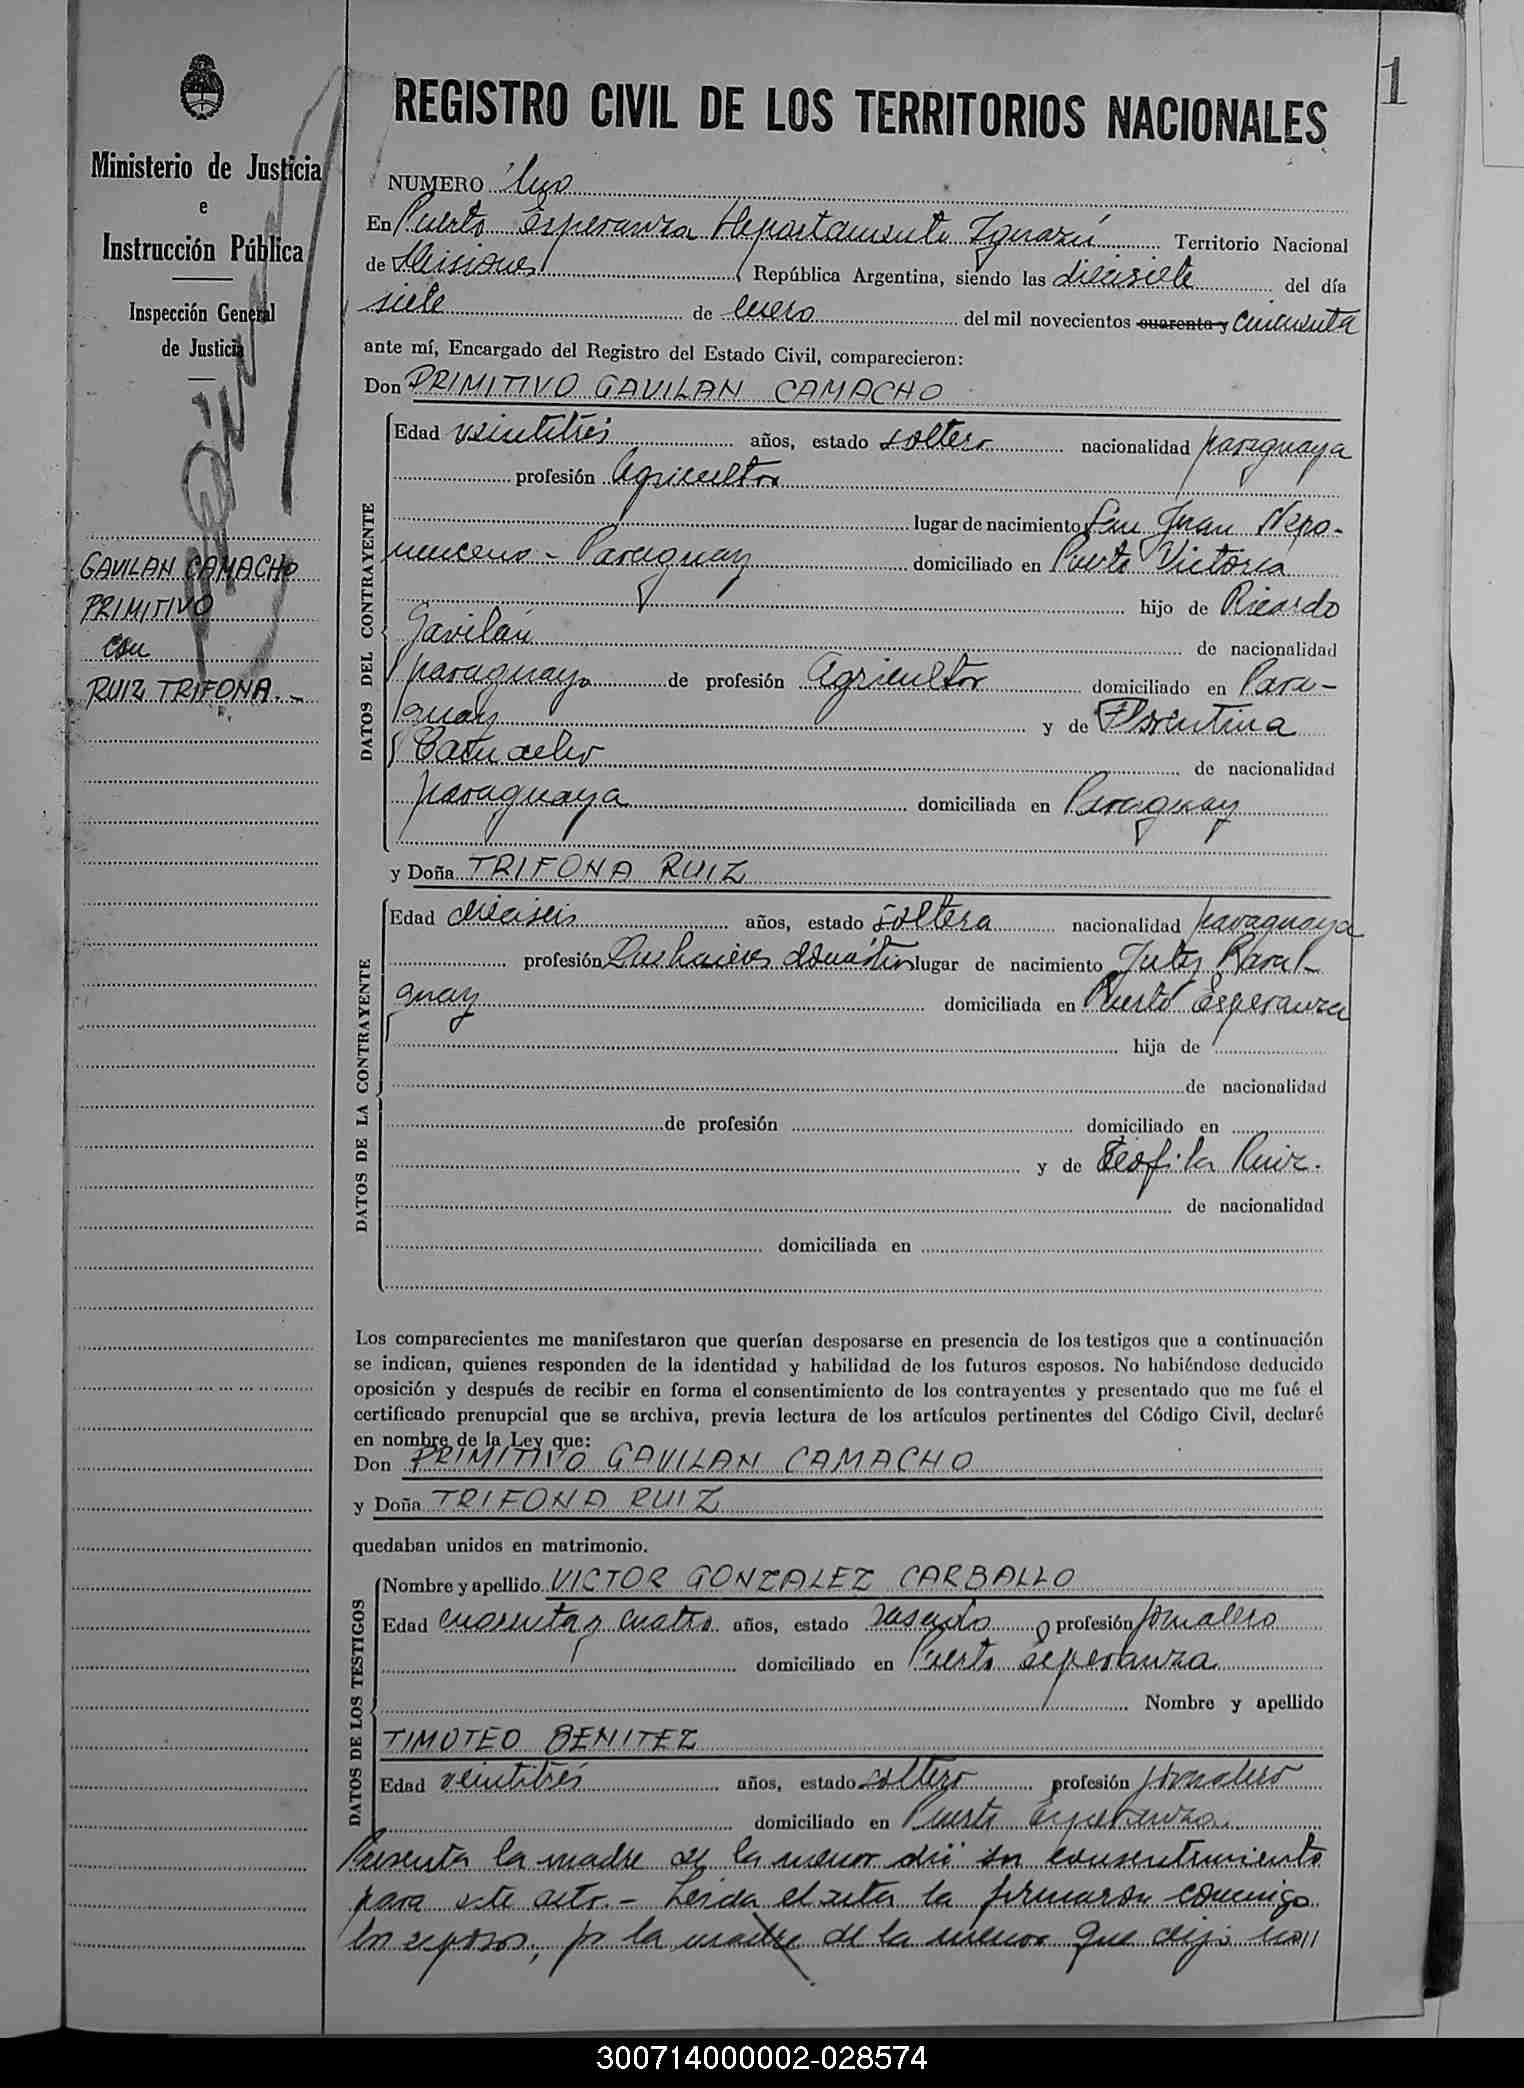 1
REGISTRO CIVIL DE LOS TERRITORIOS NACIONALES
Ministerio de Justicia
e
Instrucción Pública
Inspección General
de Justicia
GAVILAN CAMACHO
PRIMITIVO
con
RUIZ TRIFONA.-
NUMERO Uno
En Puerto Esperanza Departamento Iguazú Territorio Nacional
de Misiones República Argentina, siendo las diecisiete del día
siete de enero del mil novecientos cuarenta y cincuenta
ante mí, Encargado del Registro del Estado Civil, comparecieron:
Don PRIMITIVO GAVILAN CAMACHO
DATOS DEL CONTRAYENTE
Edad veintitrés años, estado soltero nacionalidad paraguaya
profesión Agricultor
lugar de nacimiento San Juan Nepo-
muceno - Paraguay domiciliado en Puerto Victoria
hijo de Ricardo
Gavilán de nacionalidad
paraguaya de profesión Agricultor domiciliado en Para-
guay y de Florentina
de nacionalidad
paraguaya domiciliada en Paraguay
y Doña TRIFONA RUIZ
DATOS DE LA CONTRAYENTE
Edad dieciseis años, estado soltera nacionalidad paraguaya
profesión Quehaceres domésticos lugar de nacimiento Yuty Para-
guay domiciliada en Puerto Esperanza
hija de
de nacionalidad
de profesión domiciliado en
y de Teófila Ruiz.
de nacionalidad
domiciliada en
Los comparecientes me manifestaron que querían desposarse en presencia de los testigos que a continuación
se indican, quienes responden de la identidad y habilidad de los futuros esposos. No habiéndose deducido
oposición y después de recibir en forma el consentimiento de los contrayentes y presentado que me fué el
certificado prenupcial que se archiva, previa lectura de los artículos pertinentes del Código Civil, declaré
en nombre de la Ley que:
Don PRIMITIVO GAVILAN CAMACHO
y Doña TRIFONA RUIZ
quedaban unidos en matrimonio.
DATOS DE LOS TESTIGOS
Nombre y apellido VICTOR GONZALEZ CARBALLO
Edad cuarenta y cuatro años, estado casado profesión jornalero
domiciliado en Puerto Esperanza
Nombre y apellido
TIMOTEO BENITEZ
Edad veintitrés años, estado soltero profesión jornalero
domiciliado en Puerto Esperanza.
Presenta la madre de la menor dió su consentimiento
para este acto.- Leída el acta la firmaron conmigo
los esposos, por la madre de la menor que dijo no//
300714000002-028574